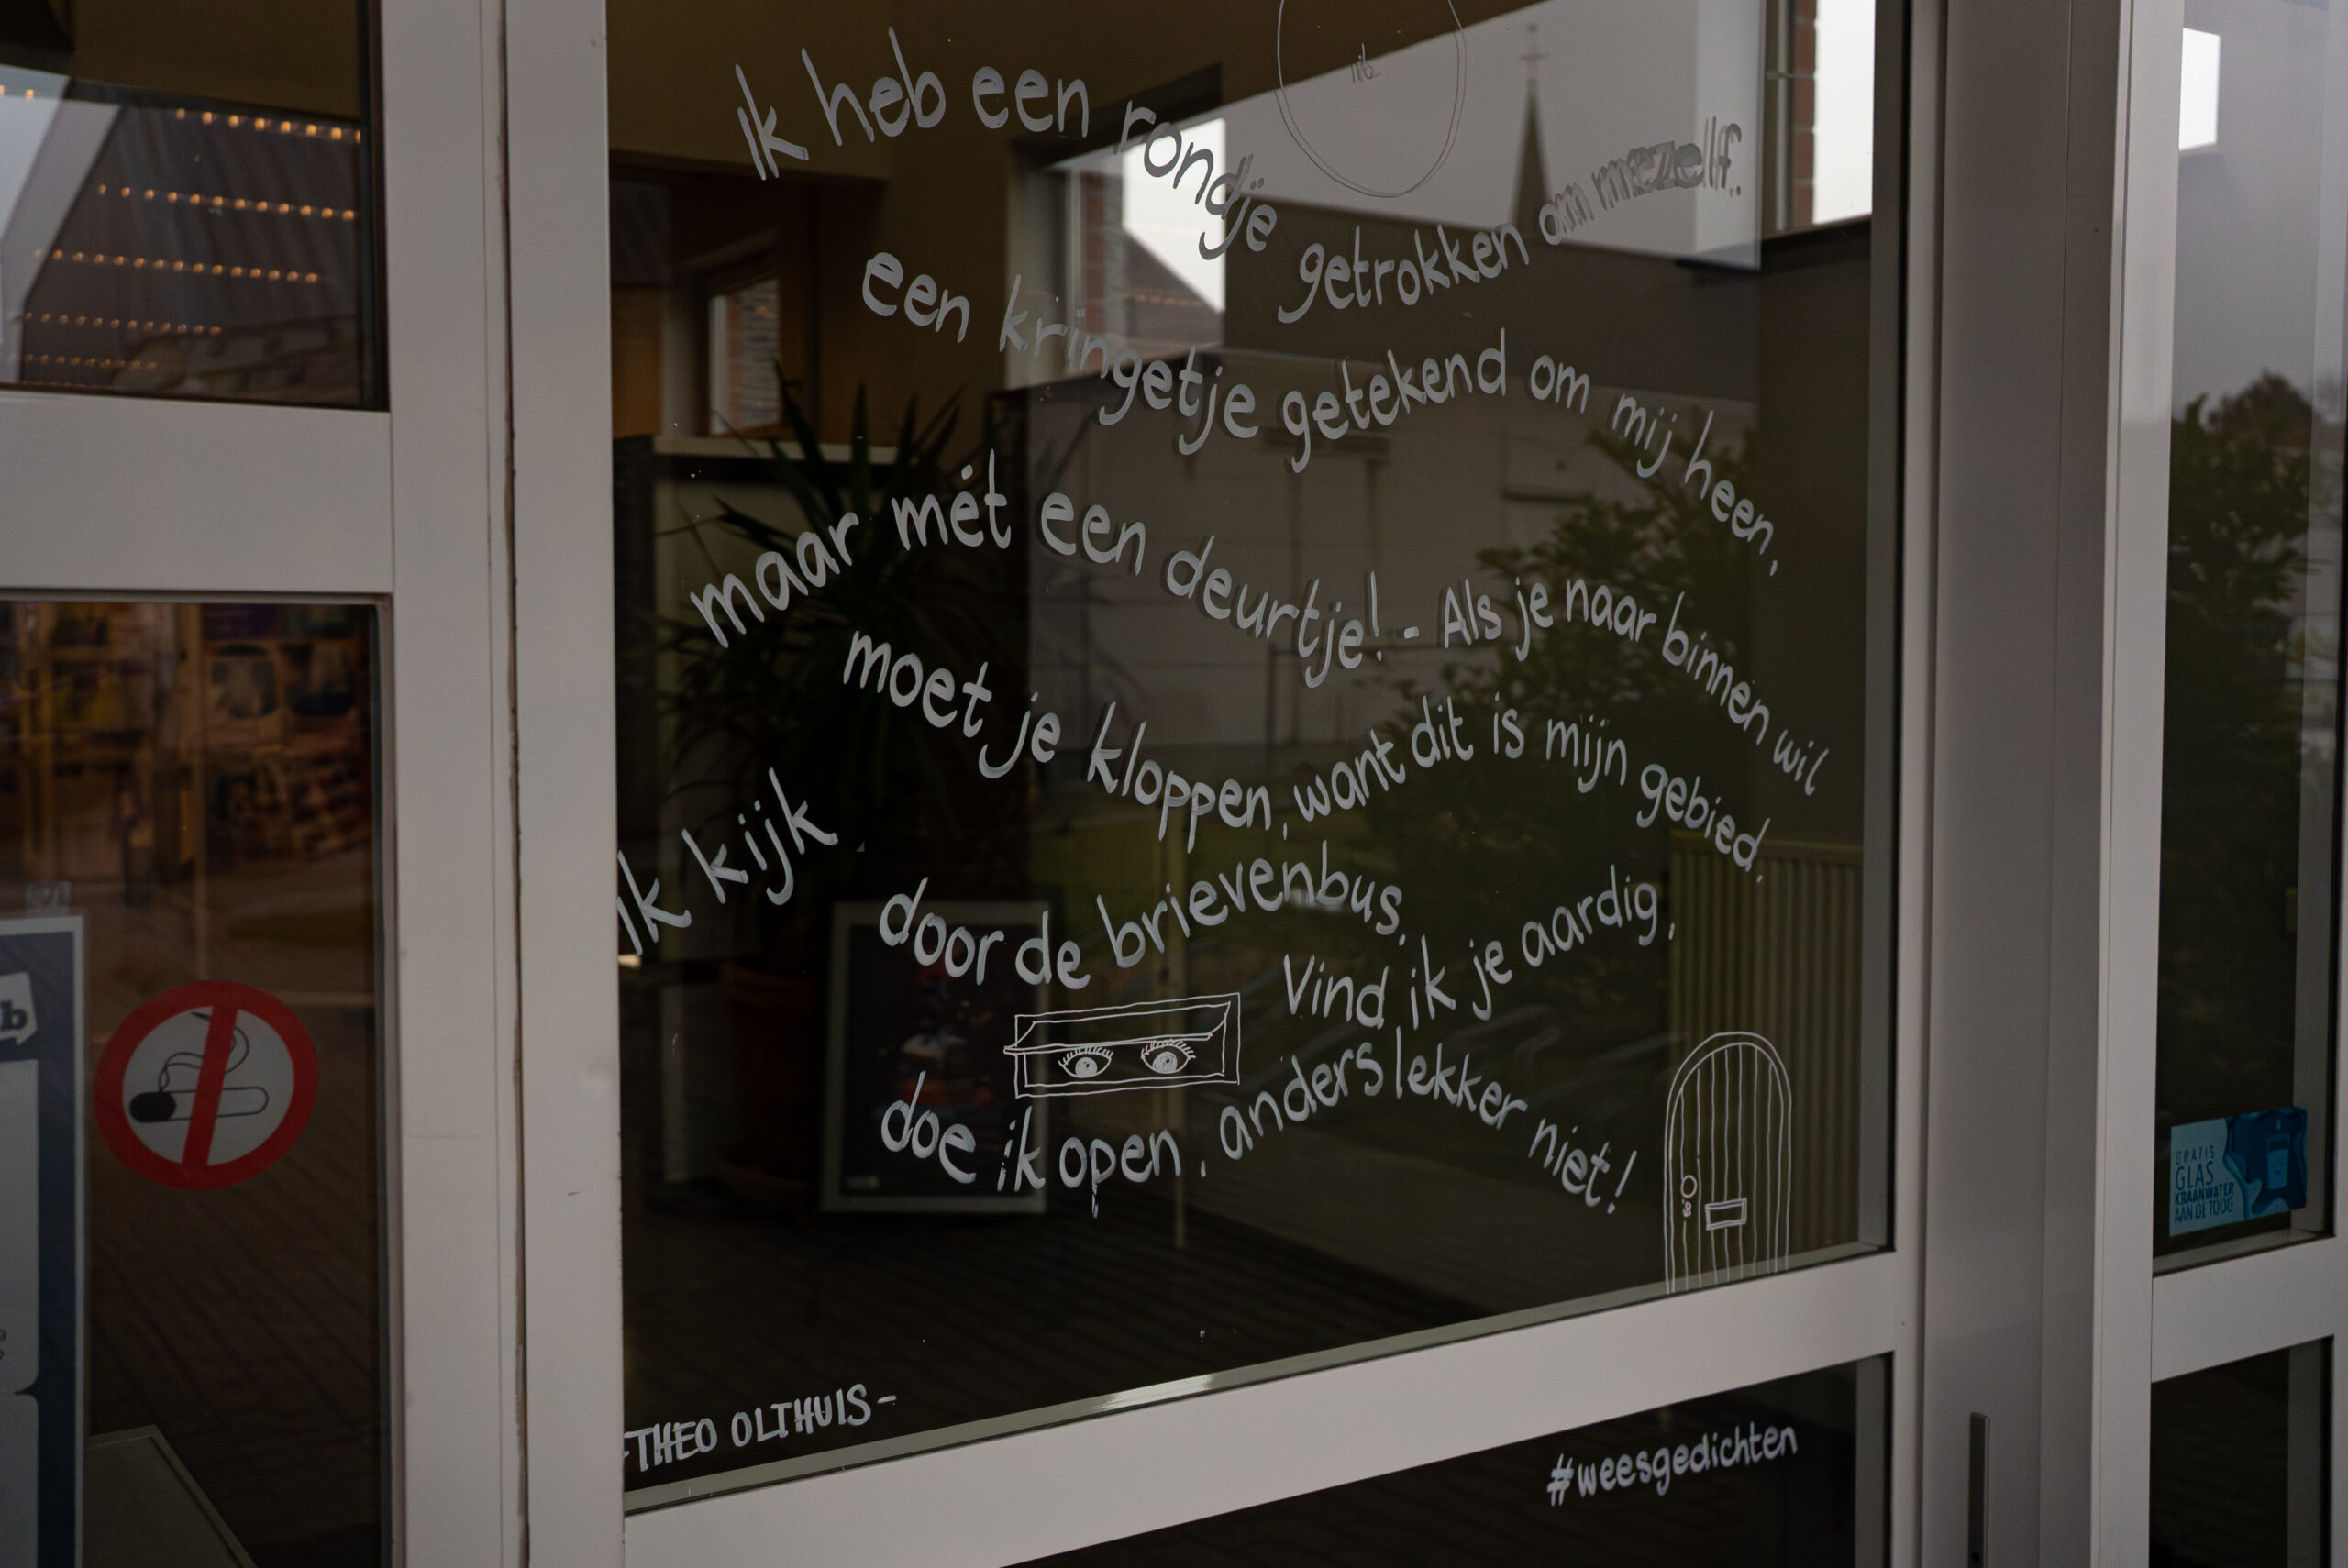 Ik heb een rondje getrokken om mezelf.
een kringetje getekend om mij heen,
maar mét een deurtje! - Als je naar binnen wil
moet je kloppen, want dit is mijn gebied.
Ik kijk door de brievenbus.
Vind ik je aardig,
doe ik open, anders lekker niet!
-THEO OLTHUIS-
#weesgedichten
GRATIS
GLAS
KRAANWATER
AAN DE TOOG
b